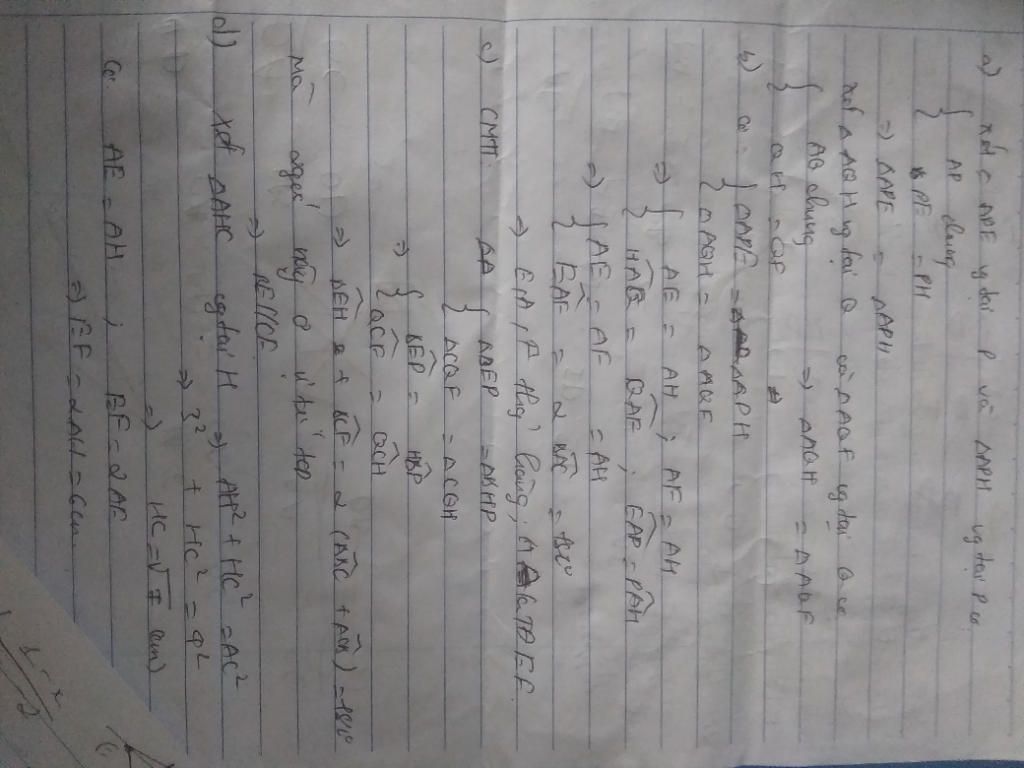 a) Xét △ APE vg tại P và △APH vg tại P có
{ AP chung
PE = PH
=) △APE = △APH
xét △ AQH vg tại Q và △AQF vg tại Q có
{ AQ chung => △AQH = △AQF
QH = QF
b) có { △APE = △APH
{ △AQH = △AQF
=) { AE = AH ; AF = AH
{ HAQ = QAF ; EAP = PAH
=) { AE = AF = AH
{ EAF = 2 BAC = 180°
=) E, A, F thẳng hàng ; A là TĐ EF
c) CMTT △BEP = △BHP
{ △CQF = △CQH
=) { BEP = HBP
{ QCF = QCH
=) + = 2 (ABC + ACB) = 180°
Mà 2 góc này ở vị trí tcp
=) BE//CF
d) xét △AHC vg tại H => AH² + HC² = AC²
=) 3² + HC² = 4²
=) HC = √7 (cm)
Có AE = AH ; EF = 2AE
=) EF = 2AH = 6cm